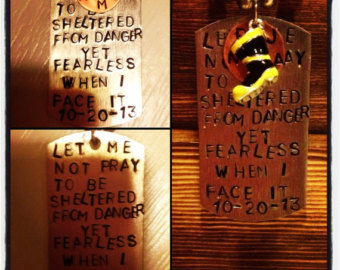 M
TO BE
SHELTERED
FROM DANGER
YET
FEARLESS
WHEN I
FACE IT
10-20-13
LET ME
NOT PRAY
TO BE
SHELTERED
FROM DANGER
YET
FEARLESS
WHEN I
LET ME
NOT PRAY
TO BE
SHELTERED
FROM DANGER
YET
FEARLESS
WHEN I
FACE IT
10-20-13